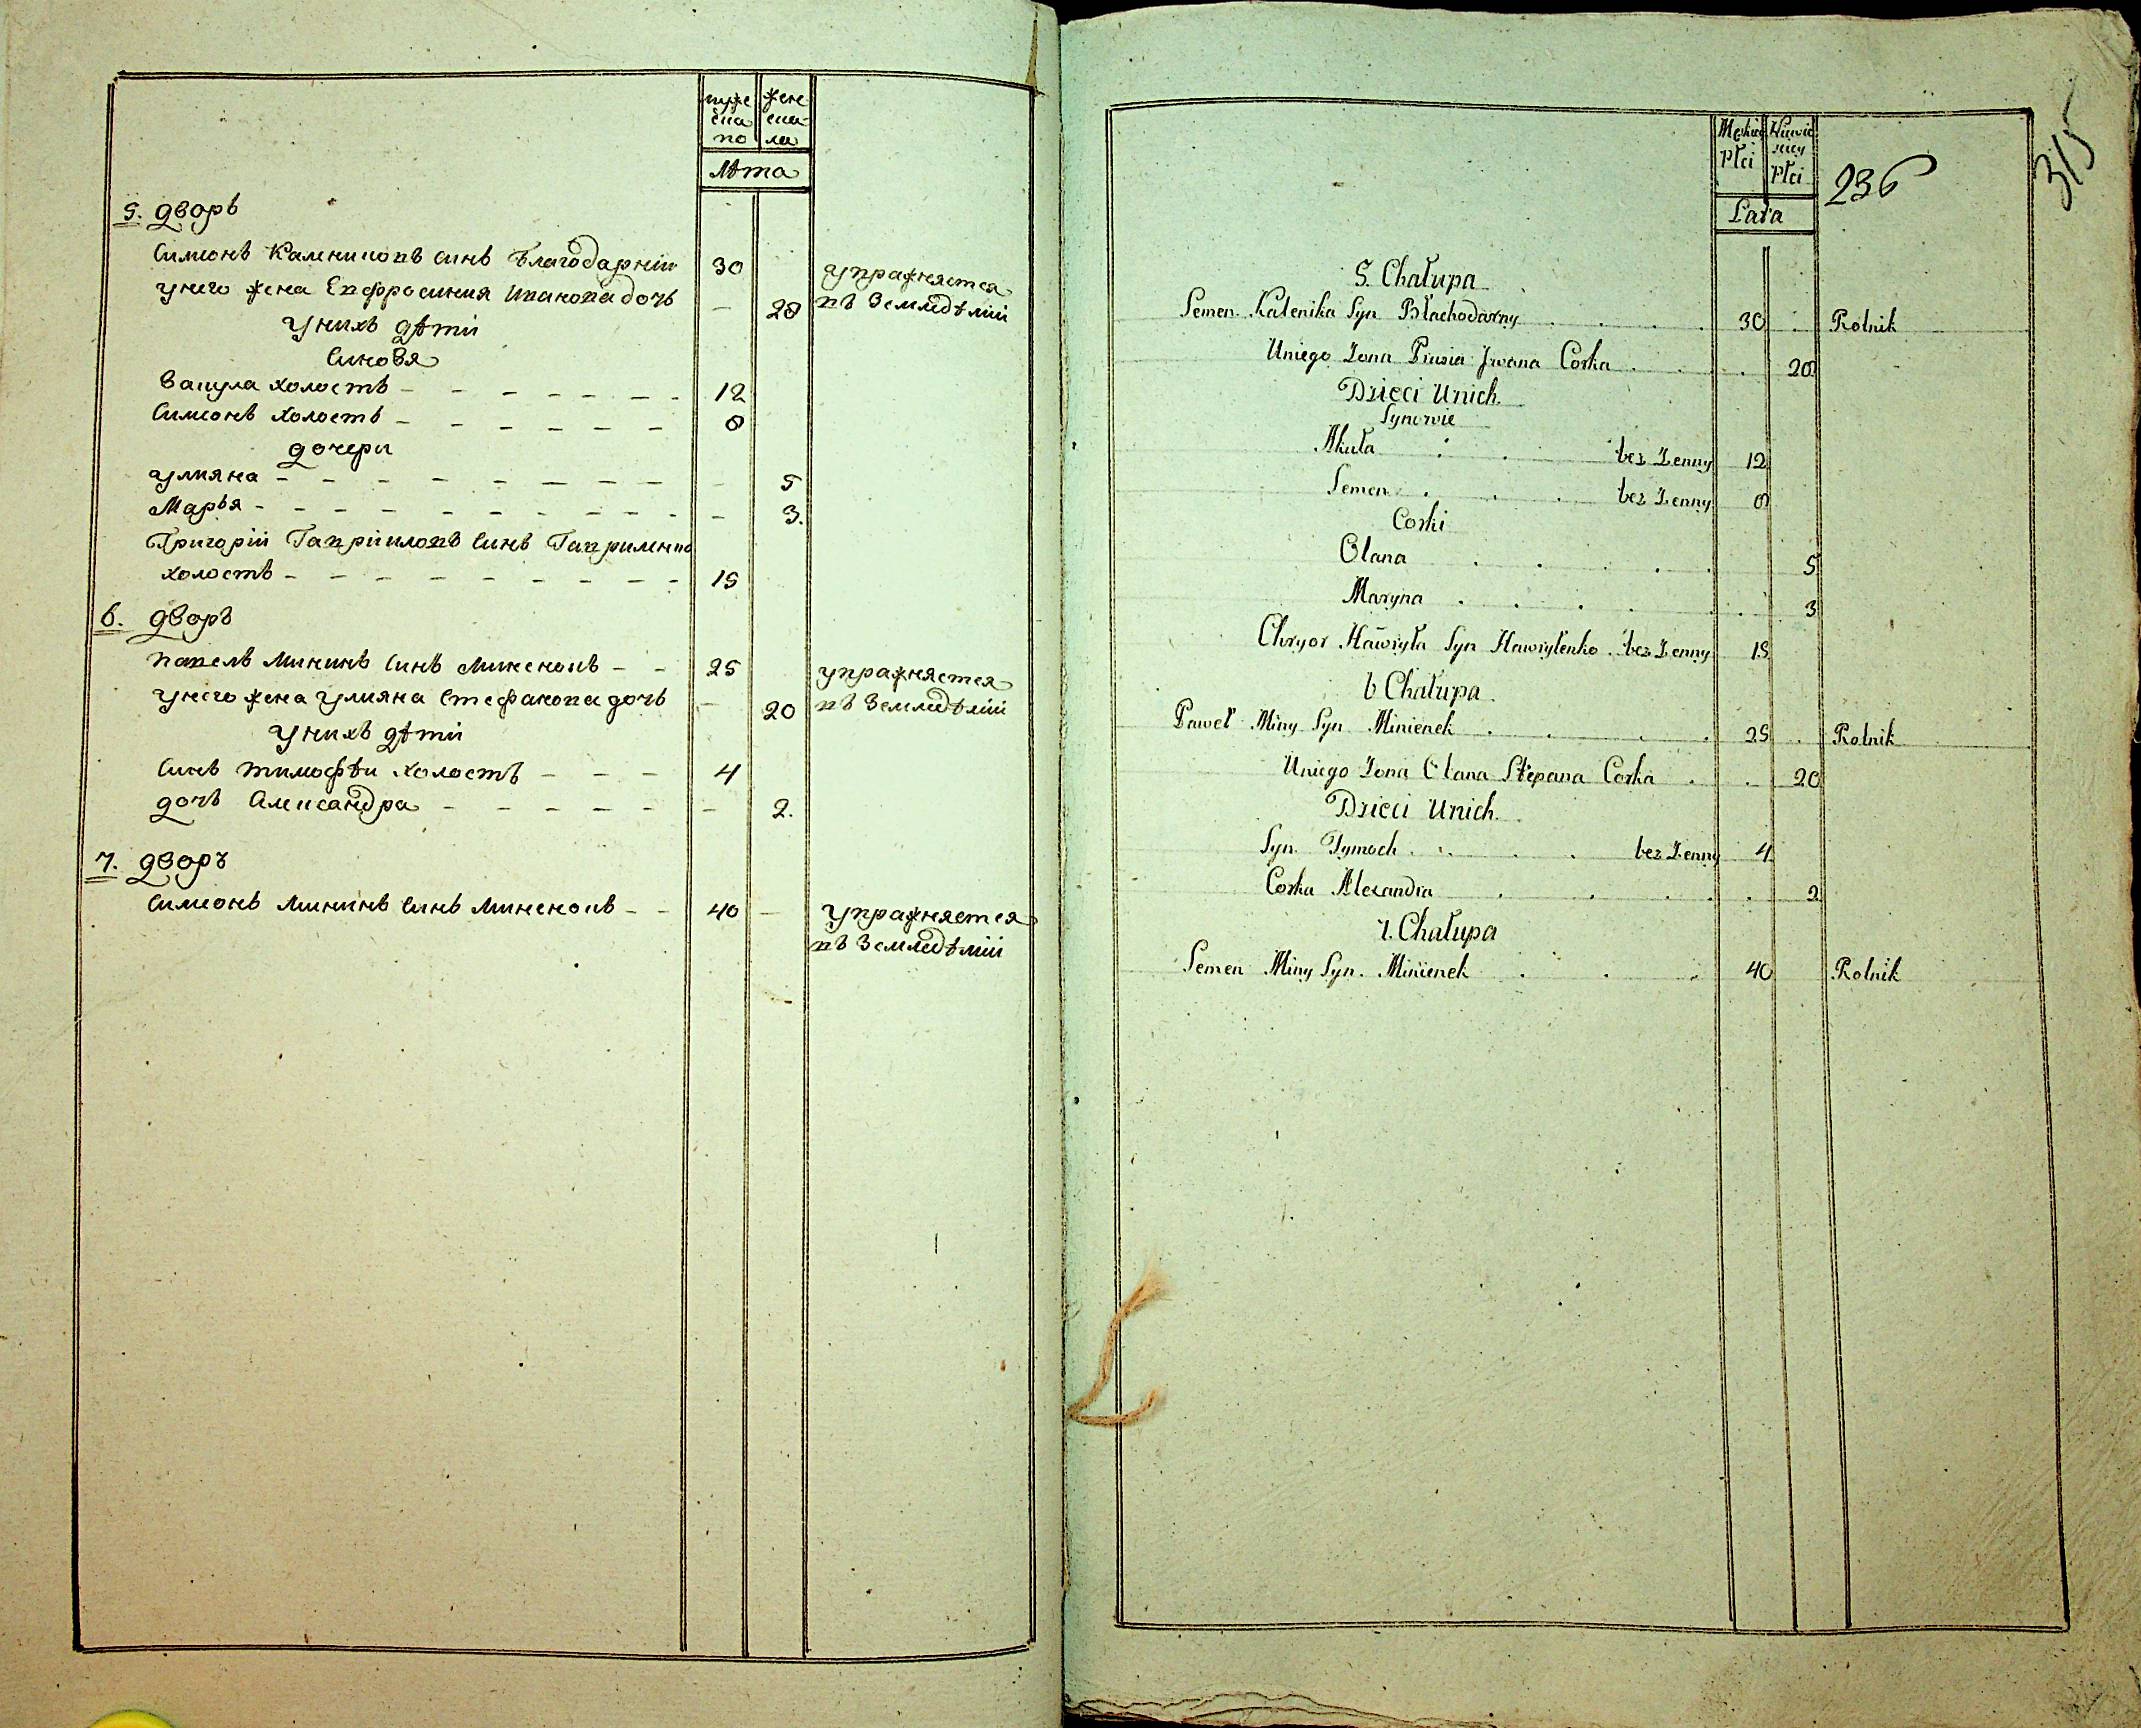 мужеска по
женска ла
Лѣта
5. дворъ
Симионъ Калениковъ синъ Благодарній 30 упражняется
унего жена Евфросиния Иванова дочъ – 28 въ Земледѣлій
Унихъ дѣти
Синовя
Вакула холостъ 12
Симионъ холостъ 8
дочери
улияна – 5
Марья – 3.
Григорій Гавріиловъ Синъ Гавриленко
холостъ 15
6. дворъ
Павелъ Мининъ Синъ Миненокъ 25 упражняется
унего жена улияна Стефанова дочъ – 20 въ Земледѣлій
Унихъ дѣти
Синъ Тимофѣи холостъ 4
дочъ Александра – 2.
7. дворъ
Симионъ Мининъ Синъ Миненокъ 40 – упражняется
въ Земледѣлій
315
236
Płci
Płci
Lata
5. Chałupa
Semen Kalenika Syn Błachodarny 30 Rolnik
Uniego Zona Prusia Jwana Corka 28
Dzieci Unich
Synowie
Akuła bez Zenny 12
Semen bez Zenny 8
Corki
Olana 5
Maryna 3
Chryor Hawryła Syn Hawrylenko bez Zenny 15
6 Chałupa
Paweł Miny Syn Minienek 25 Rolnik
Uniego Zona Olana Stepana Corka 20
Dzieci Unich
Syn Tymoch bez Zenny 4
Corka Alexandra 2
7. Chałupa
Semen Miny Syn Minienek 40 Rolnik